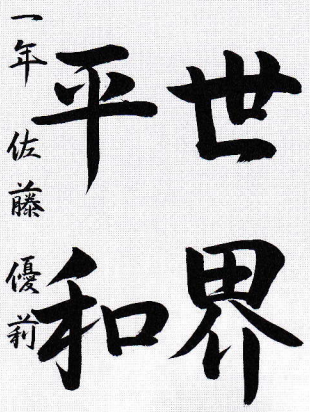 世界
平和
一年 佐藤優莉